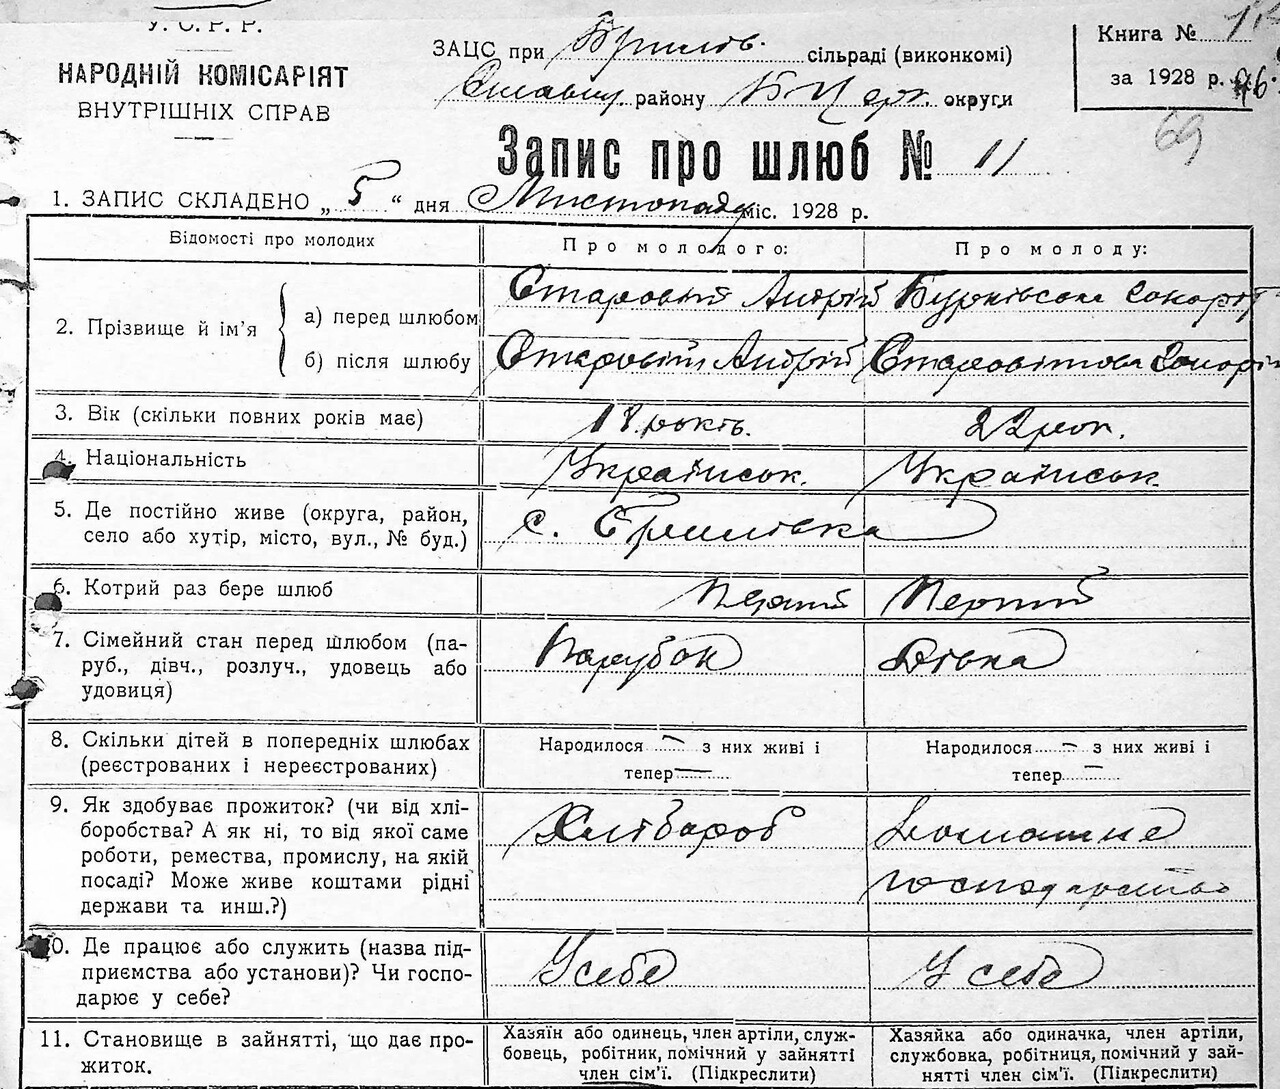 У. С. Р. Р.
НАРОДНІЙ КОМІСАРІЯТ
ВНУТРІШНІХ СПРАВ
ЗАЦС при Брилів. сільраді (виконкомі)
району Б Церк. округи
Книга №
за 1928 р.
69
Запис про шлюб № 11
1. ЗАПИС СКЛАДЕНО „ 5 “ дня Листопаду міс. 1928 р.
Відомості про молодих
Про молодого:
Про молоду:
2. Прізвище й ім’я
а) перед шлюбом
Старовіт Андрій
Бурківська
б) після шлюбу
Старовіт Андрій
Старовітова
3. Вік (скільки повних років має)
18 років.
22 рок.
4. Національність
Українськ.
Українськ.
5. Де постійно живе (округа, район,
село або хутір, місто, вул., № буд.)
с. Брилівка
6. Котрий раз бере шлюб
Перший
Перший
7. Сімейний стан перед шлюбом (па-
руб., дівч., розлуч., удовець або
удовиця)
Парубок
Дівка
8. Скільки дітей в попередніх шлюбах
(реєстрованих і нереєстрованих)
Народилося — з них живі і
тепер —
Народилося — з них живі і
тепер —
9. Як здобуває прожиток? (чи від хлі-
боробства? А як ні, то від якої саме
роботи, ремества, промислу, на якій
посаді? Може живе коштами рідні
держави та инш.?)
Хлібароб
Домашнє
господарство
10. Де працює або служить (назва під-
приємства або установи)? Чи госпо-
дарює у себе?
У себе
У себе
11. Становище в зайнятті, що дає про-
житок.
Хазяїн або одинець, член артіли, служ-
бовець, робітник, помічний у зайнятті
член сім’ї. (Підкреслити)
Хазяйка або одиначка, член артили,
службовка, робітниця, помічний у зай-
нятті член сім’ї. (Підкреслити)